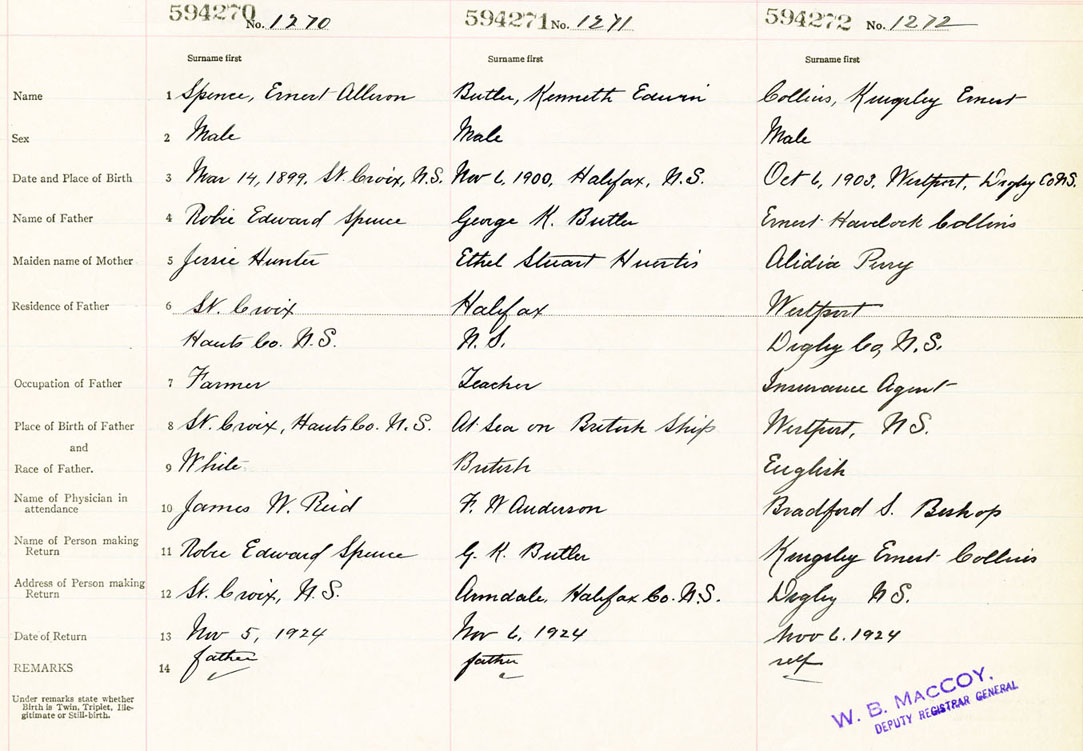 594270 No. 1270 594271 No. 1271 594272 No. 1272
Surname first Surname first Surname first
Name 1 Spence, Ernest Allison Butler, Kenneth Edwin Collins, Kingsley Ernest
Sex 2 Male Male Male
Date and Place of Birth 3 Mar 14, 1899, St. Croix, N.S. Nov 6, 1900, Halifax, N.S. Oct 6, 1903, Westport, Digby Co N.S.
Name of Father 4 Robie Edward Spence George K. Butler Ernest Havelock Collins
Maiden name of Mother 5 Jessie Hunter Ethel Stuart Huestis Alidia Perry
Residence of Father 6 St. Croix Halifax Westport
Hants Co. N.S. N.S. Digby Co, N.S.
Occupation of Father 7 Farmer Teacher Insurance Agent
Place of Birth of Father 8 St. Croix, Hants Co. N.S. At Sea on British Ship Westport, N S.
and
Race of Father. 9 White British English
Name of Physician in
attendance 10 James W. Reid F. W Anderson Bradford S. Bishop
Name of Person making
Return 11 Robie Edward Spence G. K. Butler Kingsley Ernest Collins
Address of Person making
Return 12 St. Croix, N.S. Armdale, Halifax Co. N.S. Digby N S.
Date of Return 13 Nov 5, 1924 Nov 6, 1924 Nov 6. 1924
REMARKS 14 father father self
Under remarks state whether
Birth is Twin, Triplet, Ille-
gitimate or Still-birth.
W. B. MACCOY,
DEPUTY REGISTRAR GENERAL